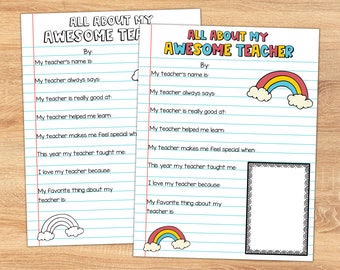 ALL ABOUT MY
AWESOME TEACHER
By:
My teacher's name is
My teacher always says
My teacher is really good at
My teacher helped me learn
My teacher makes me feel special when
This year my teacher taught me
I love my teacher because
My Favorite thing about my
teacher is
ALL ABOUT MY
AWESOME TEACHER
By:
My teacher's name is
My teacher always says
My teacher is really good at:
My teacher helped me learn
My teacher makes me feel special when
This year my teacher taught me
I love my teacher because
My Favorite thing about my
teacher is